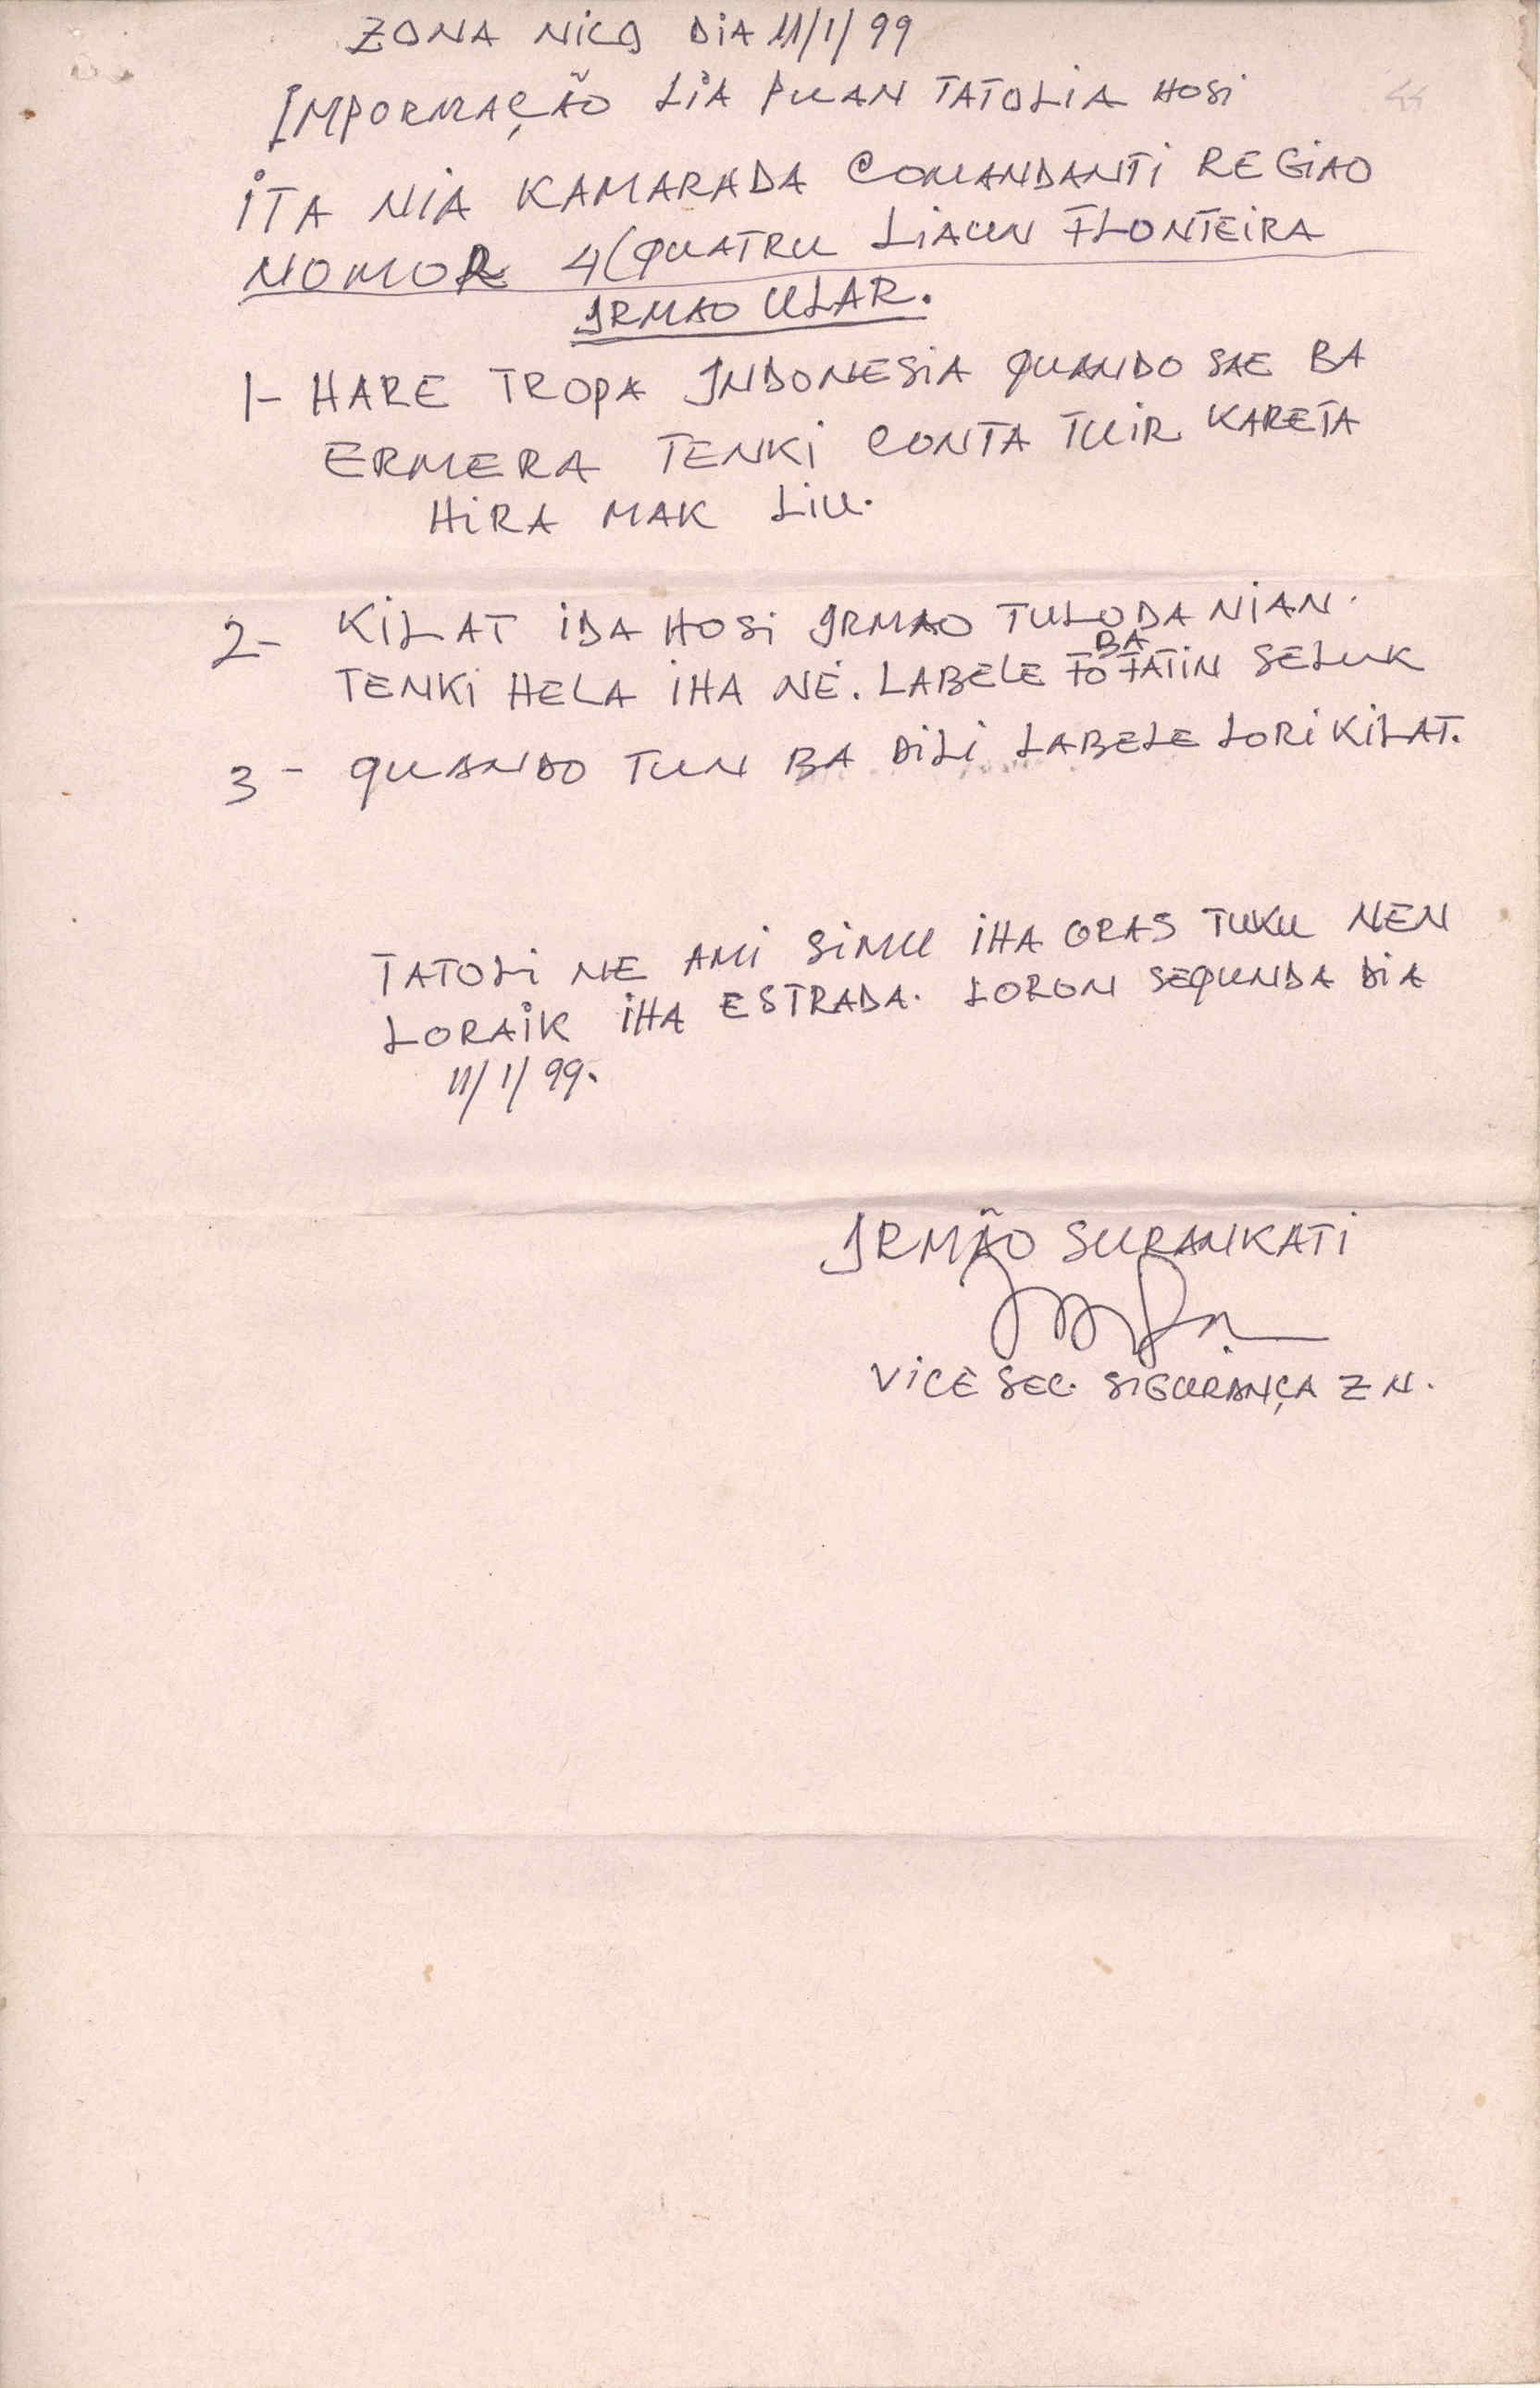 ZONA NICO DIA 11/1/99
44
IMPORMAÇÃO LIA PUAN TATOLIA HOSI
ITA NIA KAMARADA COMANDANTI REGIAO
NOMOR 4 (QUATRU LIAUN FLONTEIRA
IRMAO ULAR.
1- HARE TROPA INDONESIA QUANDO SAE BA
ERMERA TENKI CONTA TUIR KARETA
HIRA MAK LIU.
2- KILAT IDA HOSI IRMAO TULODA NIAN.
TENKI HELA IHA NE. LABELE FO BA FATIN SELUK
3- QUANDO TUN BA DILI LABELE LORI KILAT.
TATOLI NE AMI SIMU IHA ORAS TUKU NEN
LORAIK IHA ESTRADA. LORON SEQUNDA DIA
11/1/99.
IRMÃO SURANKATI
VICE SEC. SIGURANÇA Z N.